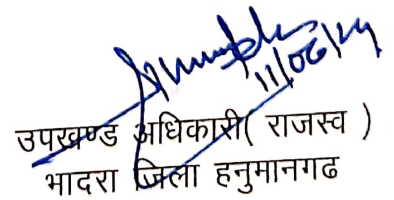 11/06/24
उपखण्ड अधिकारी( राजस्व )
भादरा जिला हनुमानगढ